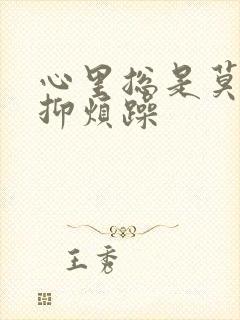 心里总是莫
抑烦躁
王秀